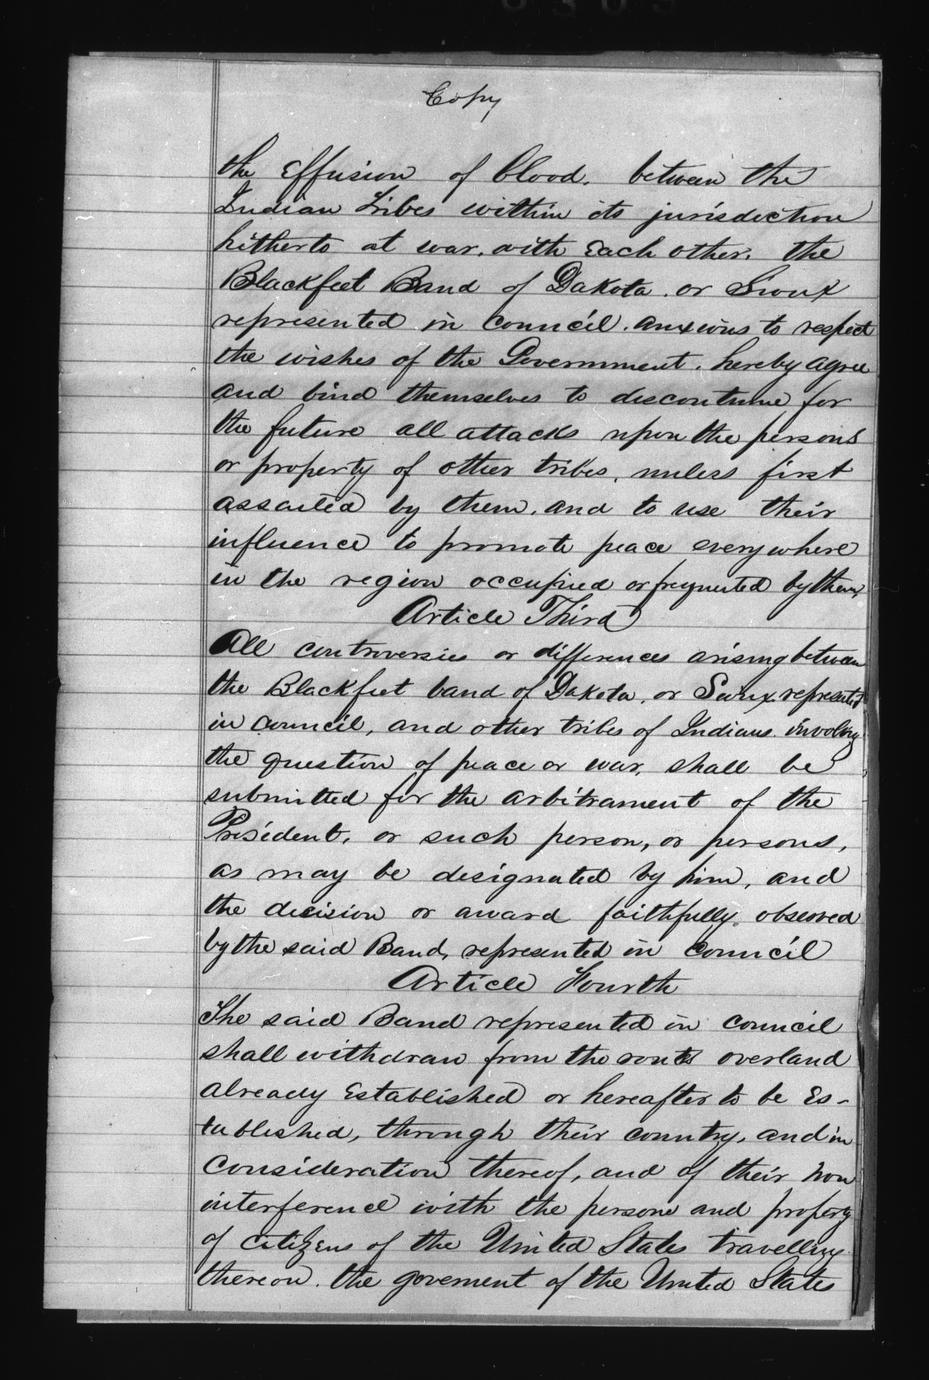 Copy
the Effusion of blood. between the
Indian Tribes within its jurisdiction
hitherto at war. with Each other. the
Blackfeet Band of Dakota. or Sioux
represented in council. anxious to respect
the wishes of the Government. hereby agree
and bind themselves to discontinue for
the future all attacks upon the persons
or property of other tribes, unless first
assailed by them. and to use their
influence to promote peace everywhere
in the region occupied or frequented by them
Article Third
All controversies or differences arising between
the Blackfeet band of Dakota, or Sioux represented
in council, and other tribes of Indians involving
the question of peace or war, shall be
submitted for the arbitrament of the
President, or such person, or persons,
as may be designated by him, and
the decision or award faithfully observed
by the said Band, represented in council
Article Fourth
The said Band represented in council
shall withdraw from the routs overland
already Established or hereafter to be Es-
tablished, through their country, and in
consideration thereof, and of their non
interference with the persons and property
of citizens of the United States travelling
thereon. the goverment of the United States